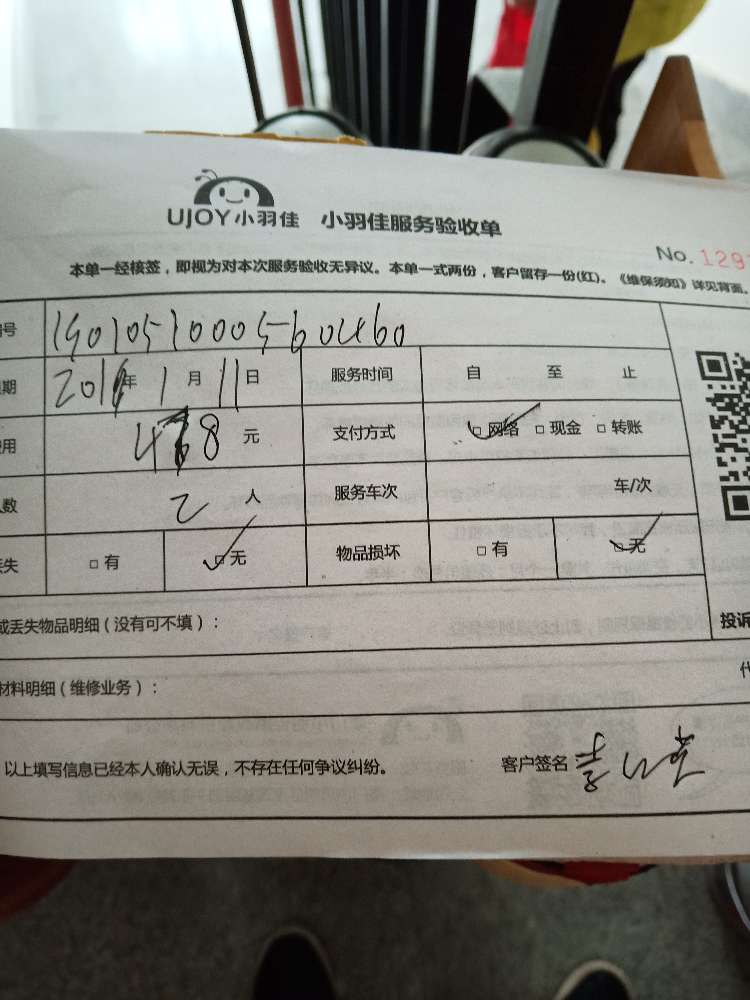 UJOY小羽佳 小羽佳服务验收单
No. 129
本单一经核签，即视为对本次服务验收无异议。本单一式两份，客户留存一份(红)。《维保须知》详见背面。
号 1901051000560460
期 年 1 月 11 日 服务时间 自 至 止
用 元 支付方式 □ 网络 □ 现金 □ 转账
人数 2 人 服务车次 车/次
丢失 □ 有 □ 无 物品损坏 □ 有 □ 无
或丢失物品明细（没有可不填）： 投诉
材料明细（维修业务）：
以上填写信息已经本人确认无误，不存在任何争议纠纷。 客户签名